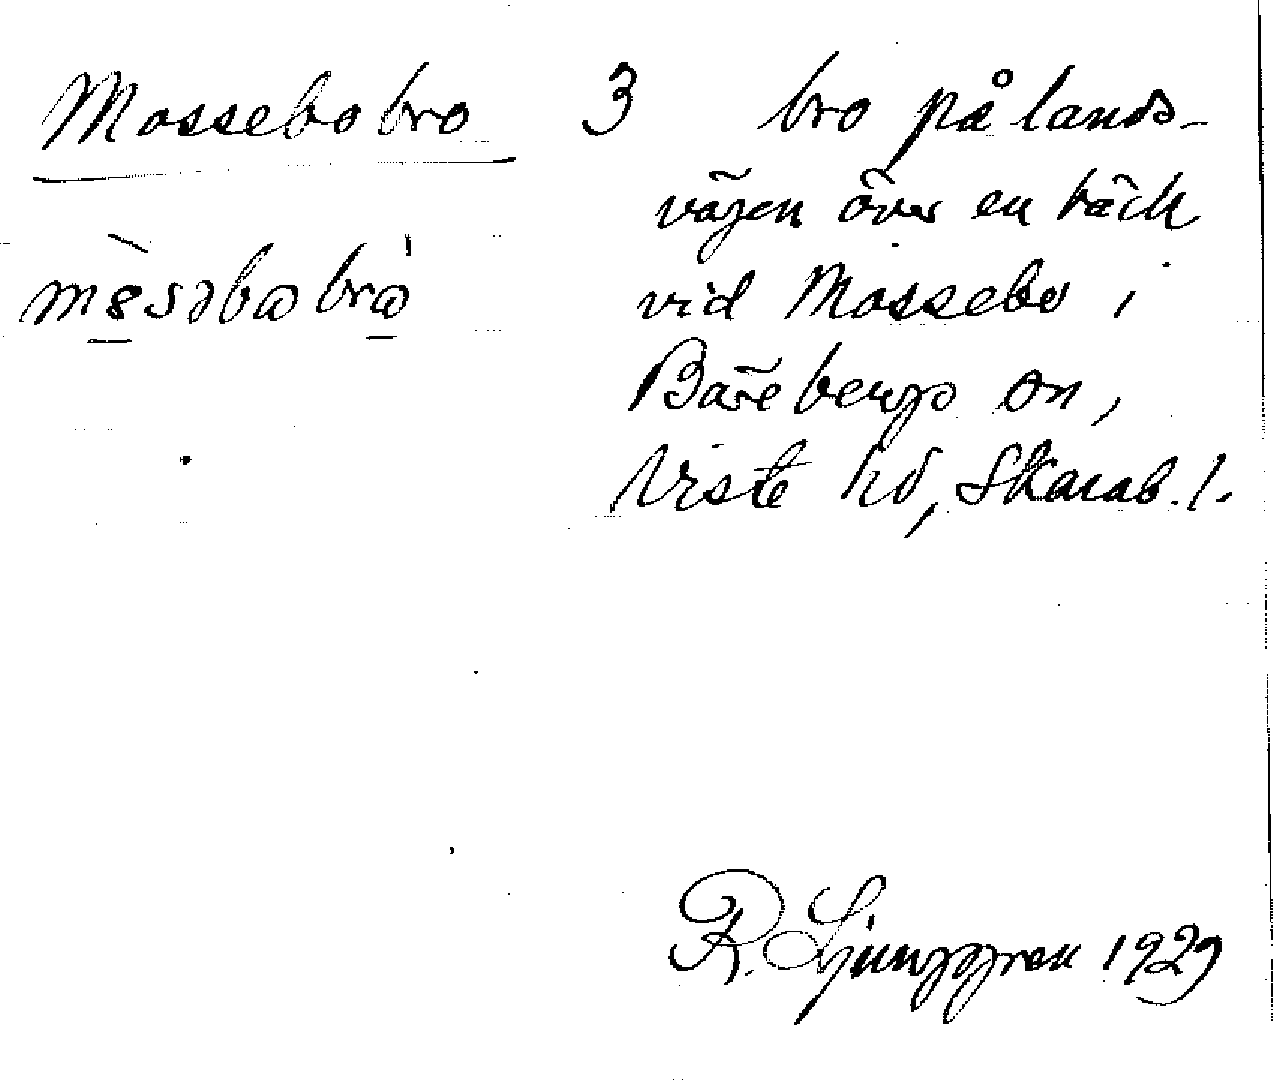 Mossebo bro 3 bro på lands-
vägen över en bäck
vid Mossebo i
Bärebergs sn,
Viste hd, Skarab. l.
R. Ljunggren 1929